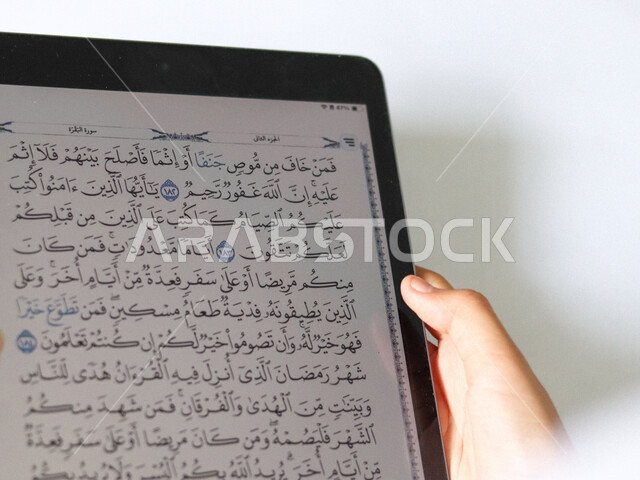 47%
سورة البقرة
الجزء الثاني
فَمَنْ خَافَ مِن مُّوصٍ جَنَفًا أَوْ إِثْمًا فَأَصْلَحَ بَيْنَهُمْ فَلَآ إِثْمَ
عَلَيْهِ ۚ إِنَّ ٱللَّهَ غَفُورٌ رَّحِيمٌ ١٨٢ يَٰٓأَيُّهَا ٱلَّذِينَ ءَامَنُوا۟ كُتِبَ
عَلَيْكُمُ ٱلصِّيَامُ كَمَا كُتِبَ عَلَى ٱلَّذِينَ مِن قَبْلِكُمْ
لَعَلَّكُمْ تَتَّقُونَ ١٨٣ أَيَّامًا مَّعْدُودَٰتٍ ۚ فَمَن كَانَ
مِنكُم مَّرِيضًا أَوْ عَلَىٰ سَفَرٍ فَعِدَّةٌ مِّنْ أَيَّامٍ أُخَرَ ۚ وَعَلَى
ٱلَّذِينَ يُطِيقُونَهُۥ فِدْيَةٌ طَعَامُ مِسْكِينٍ ۖ فَمَن تَطَوَّعَ خَيْرًا
فَهُوَ خَيْرٌ لَّهُۥ ۚ وَأَن تَصُومُوا۟ خَيْرٌ لَّكُمْ ۖ إِن كُنتُمْ تَعْلَمُونَ ١٨٤
شَهْرُ رَمَضَانَ ٱلَّذِىٓ أُنزِلَ فِيهِ ٱلْقُرْءَانُ هُدًى لِّلنَّاسِ
وَبَيِّنَٰتٍ مِّنَ ٱلْهُدَىٰ وَٱلْفُرْقَانِ ۚ فَمَن شَهِدَ مِنكُمُ
ٱلشَّهْرَ فَلْيَصُمْهُ ۖ وَمَن كَانَ مَرِيضًا أَوْ عَلَىٰ سَفَرٍ فَعِدَّةٌ
مِّنْ أَيَّامٍ أُخَرَ ۗ يُرِيدُ ٱللَّهُ بِكُمُ ٱلْيُسْرَ وَلَا يُرِيدُ بِكُمُ
ARABSTOCK